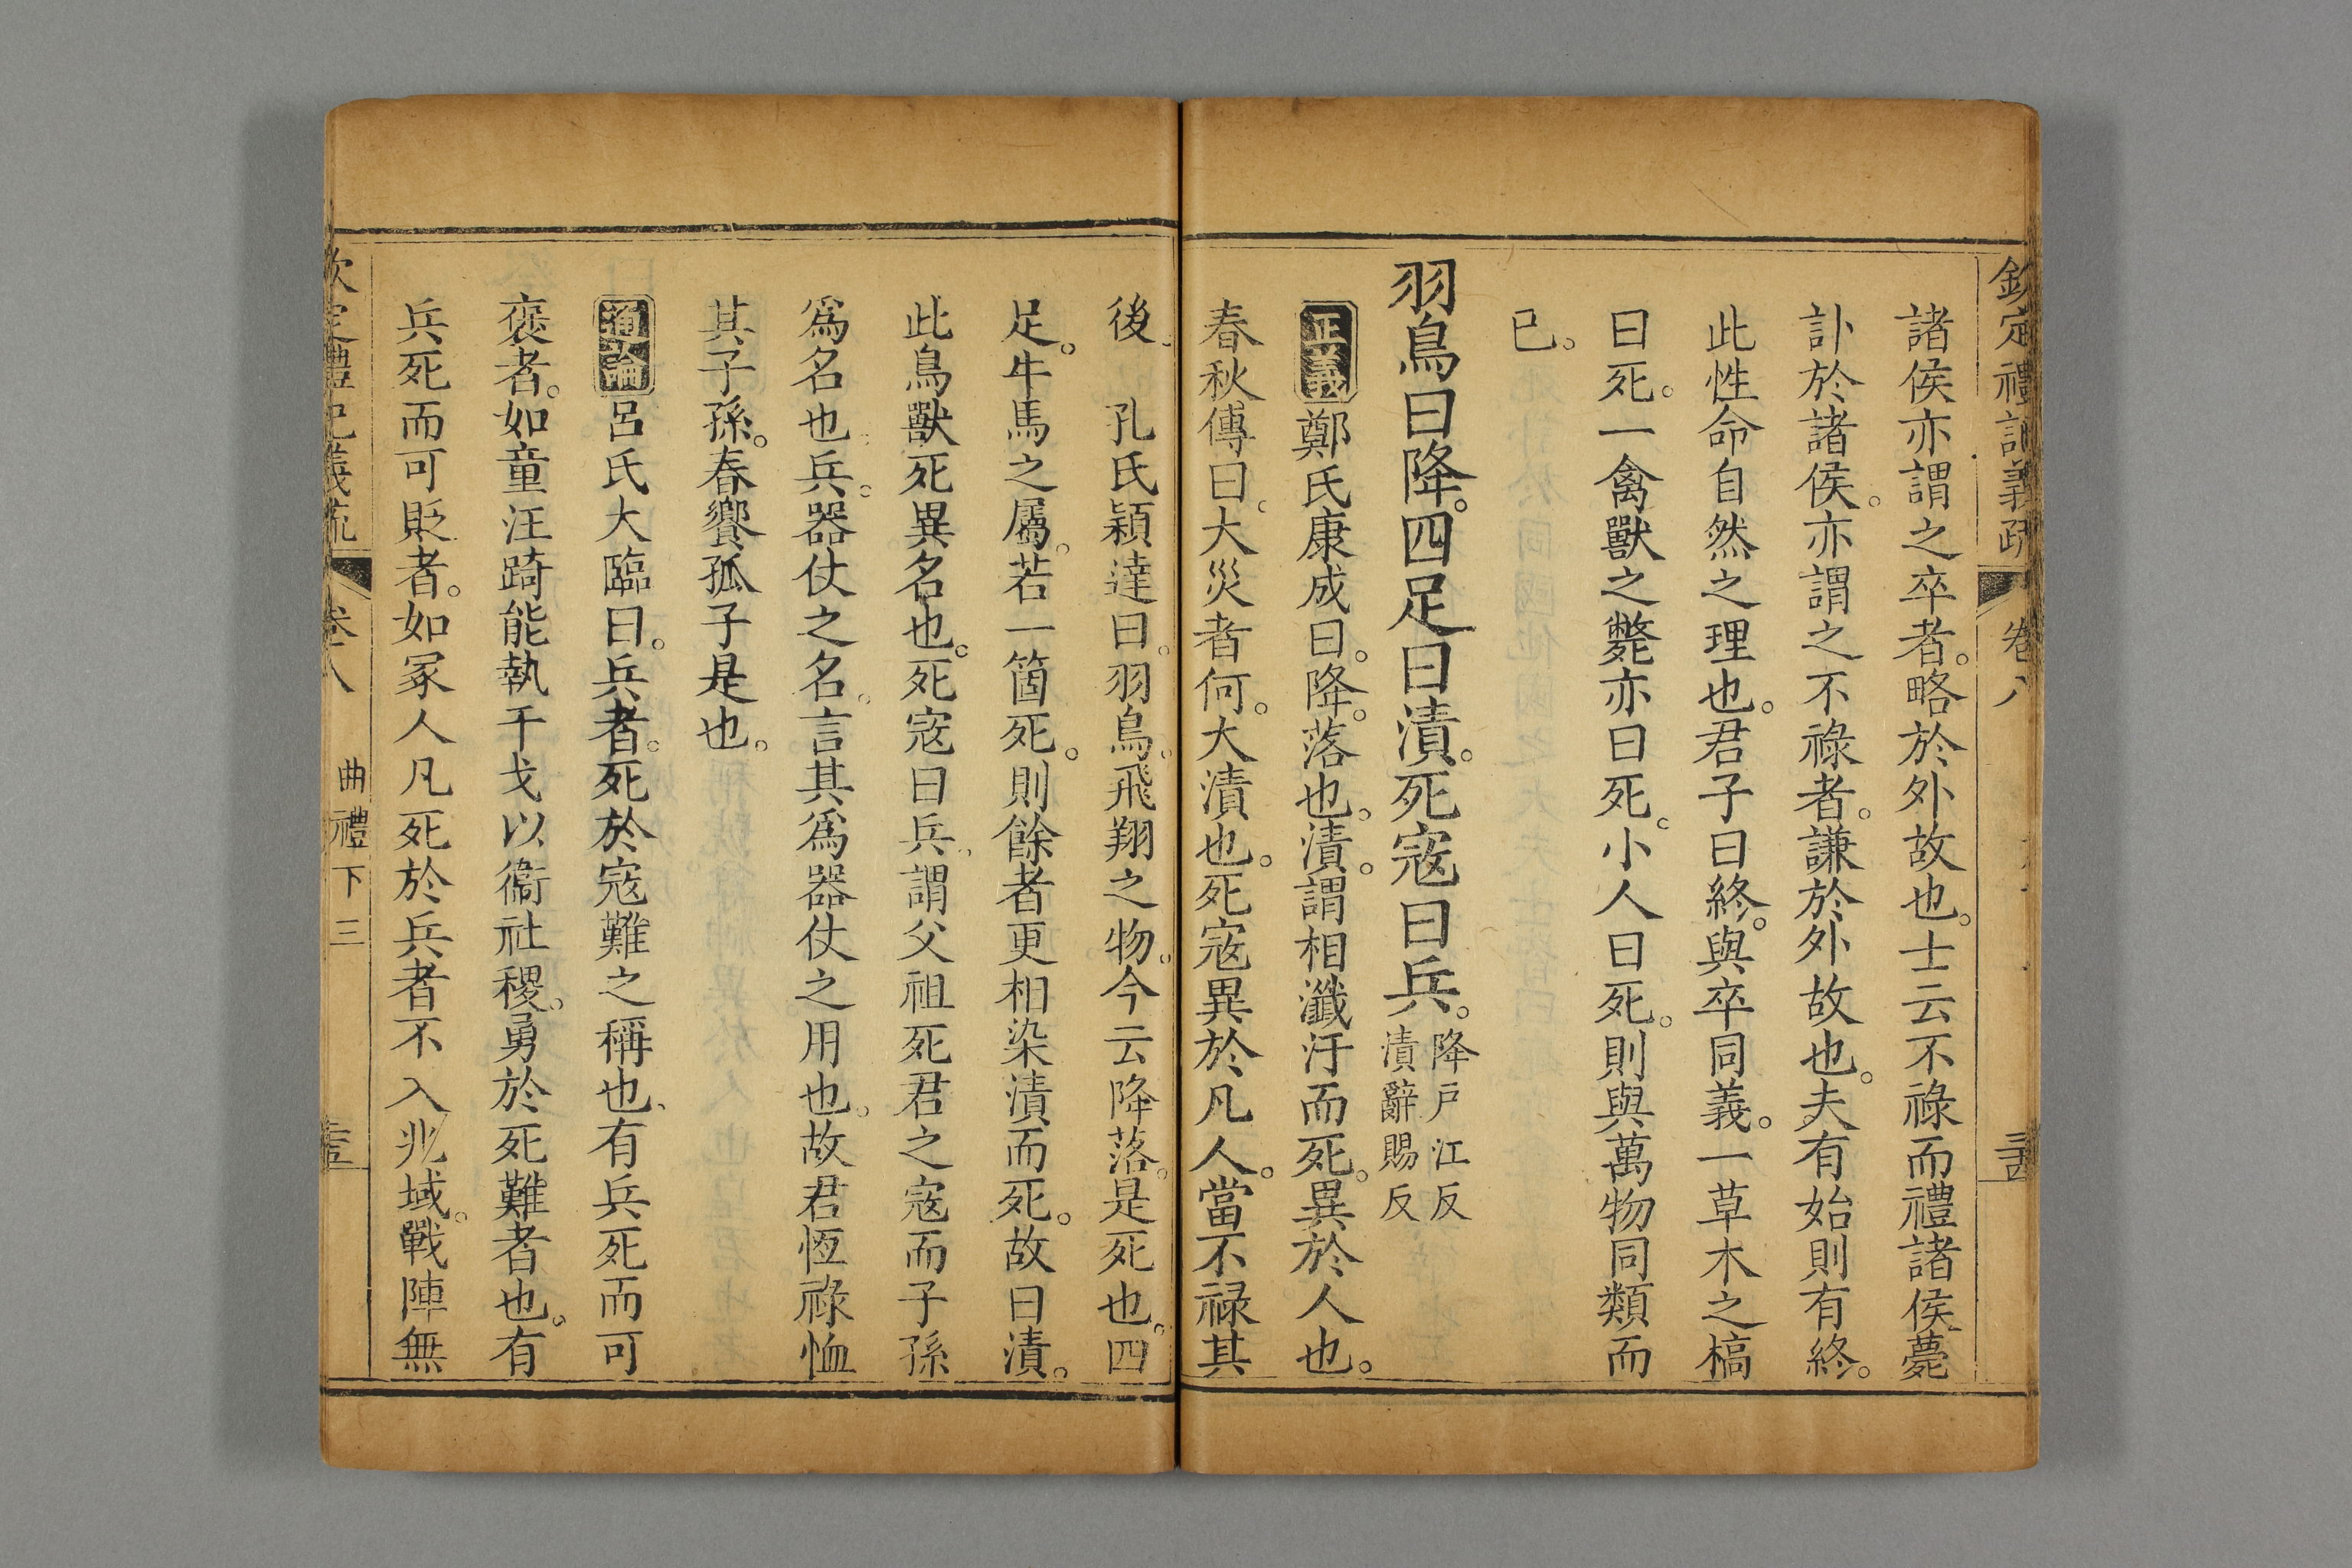 欽定禮記義疏 卷八
諸侯亦謂之卒者。略於外故也。士云不祿而禮諸侯薨
訃於諸侯。亦謂之不祿者。謙於外故也。夫有始則有終。
此性命自然之理也。君子曰終。與卒同義。一草木之槁
曰死。一禽獸之斃亦曰死。小人曰死。則與萬物同類而
已。
羽鳥曰降。四足曰漬。死寇曰兵。降戶江反漬辭賜反
正義 鄭氏康成曰。降。落也。漬。謂相瀸汙而死。異於人也。
春秋傳曰。大災者何。大漬也。死寇異於凡人。當不祿其
後。 孔氏穎達曰。羽鳥。飛翔之物。今云降落。是死也。四
足。牛馬之屬。若一箇死。則餘者更相染漬而死。故曰漬。
此鳥獸死異名也。死寇曰兵。謂父祖死君之寇而子孫
爲名也。兵。器仗之名。言其爲器仗之用也。故君恆祿恤
其子孫。春饗孤子是也。
通論 呂氏大臨曰。兵者。死於寇難之稱也。有兵死而可
褒者。如童汪踦能執干戈以衞社稷。勇於死難者也。有
兵死而可貶者。如冢人凡死於兵者不入兆域。戰陣無
欽定禮記義疏 卷八 曲禮下三